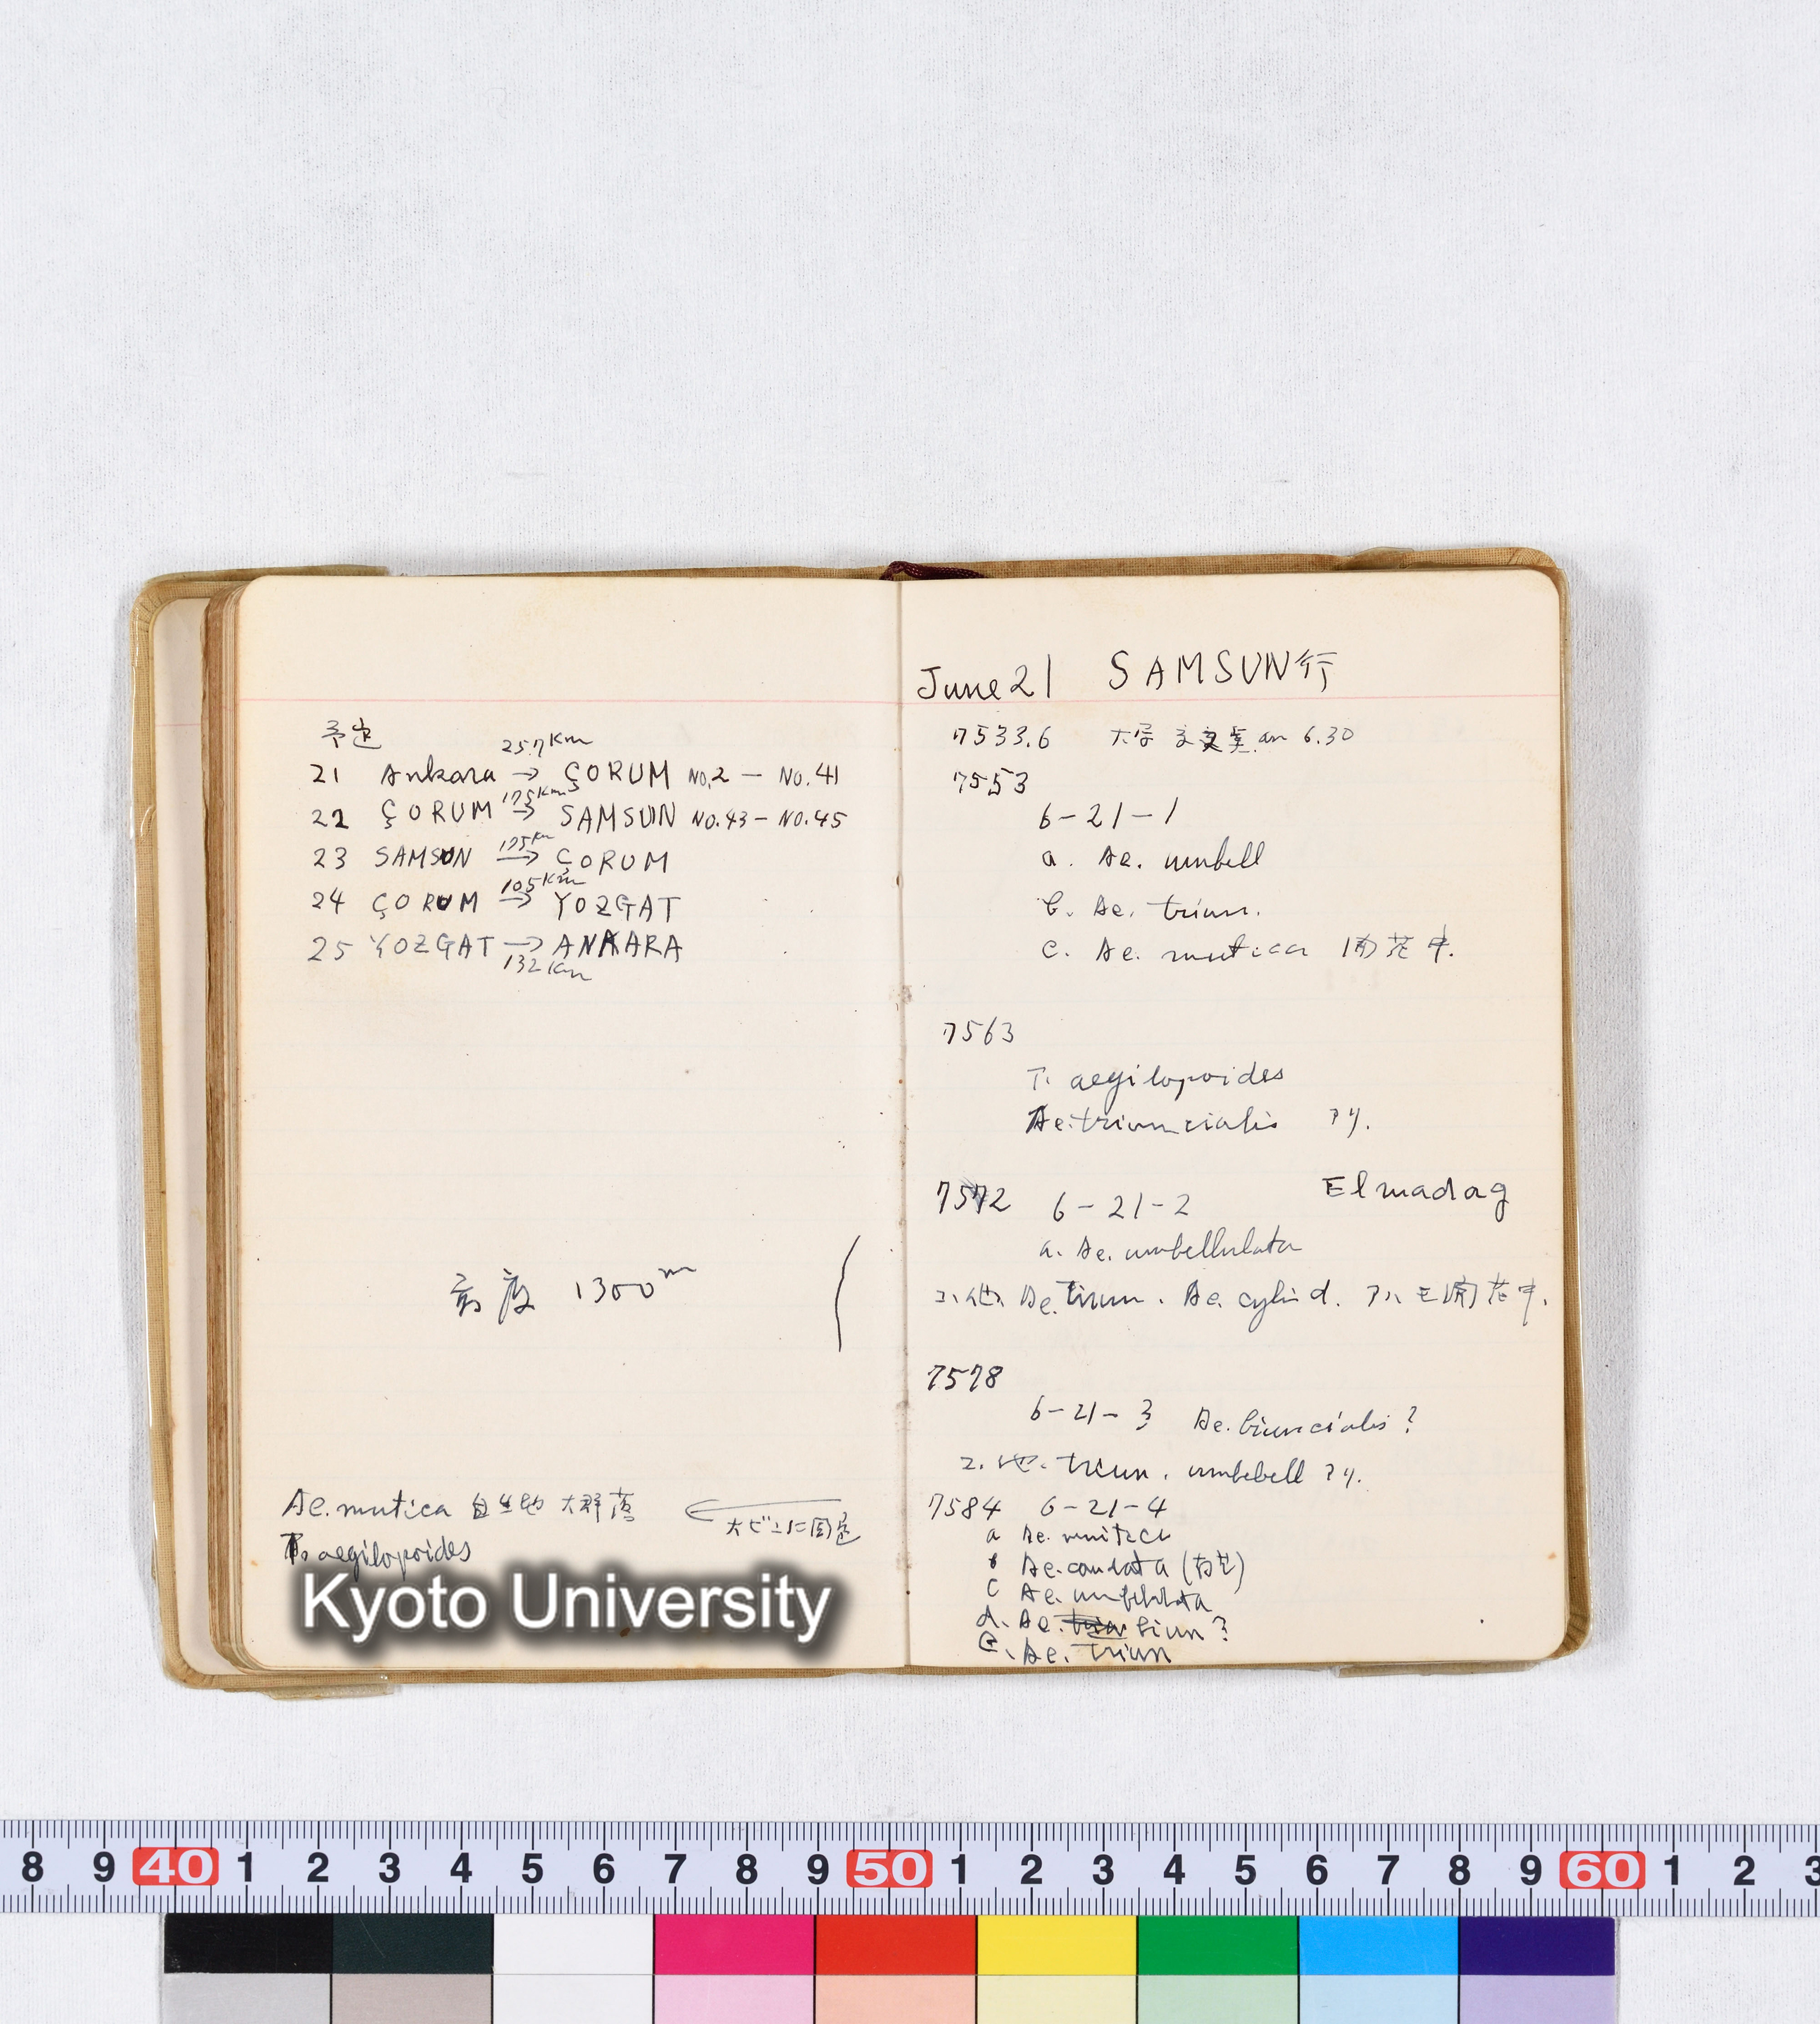 予定
21 Ankara 257km → ÇORUM No.2 — No.41
22 ÇORUM 175km → SAMSUN No.43 — No.45
23 SAMSUN 175km → ÇORUM
24 ÇORUM 105km → YOZGAT
25 YOZGAT → ANKARA
132km
高度 1300m
Ae. mutica 自生地 大群落
大ビンに固定
T. aegilopoides
Kyoto University
June 21 SAMSUN行
7533.6 大学 am 6.30
7553
6-21-1
a. Ae. umbell
b. Ae. triun.
c. Ae. mutica 開花中.
7563
T. aegilopoides
Ae. triuncialis アリ.
7572 6-21-2 Elmadag
a. Ae. umbellulata
コノ他 Ae. triun. Ae. cylind. アルモ開花中.
7578
6-21-3 Ae. biuncialis ?
コノ他. triun. umbebell アリ.
7584 6-21-4
a Ae. mutica
b Ae. caudata (有芒)
c Ae. umbellulata
d. Ae. biun ?
e. Ae. triun
8 9 40 1 2 3 4 5 6 7 8 9 50 1 2 3 4 5 6 7 8 9 60 1 2 3